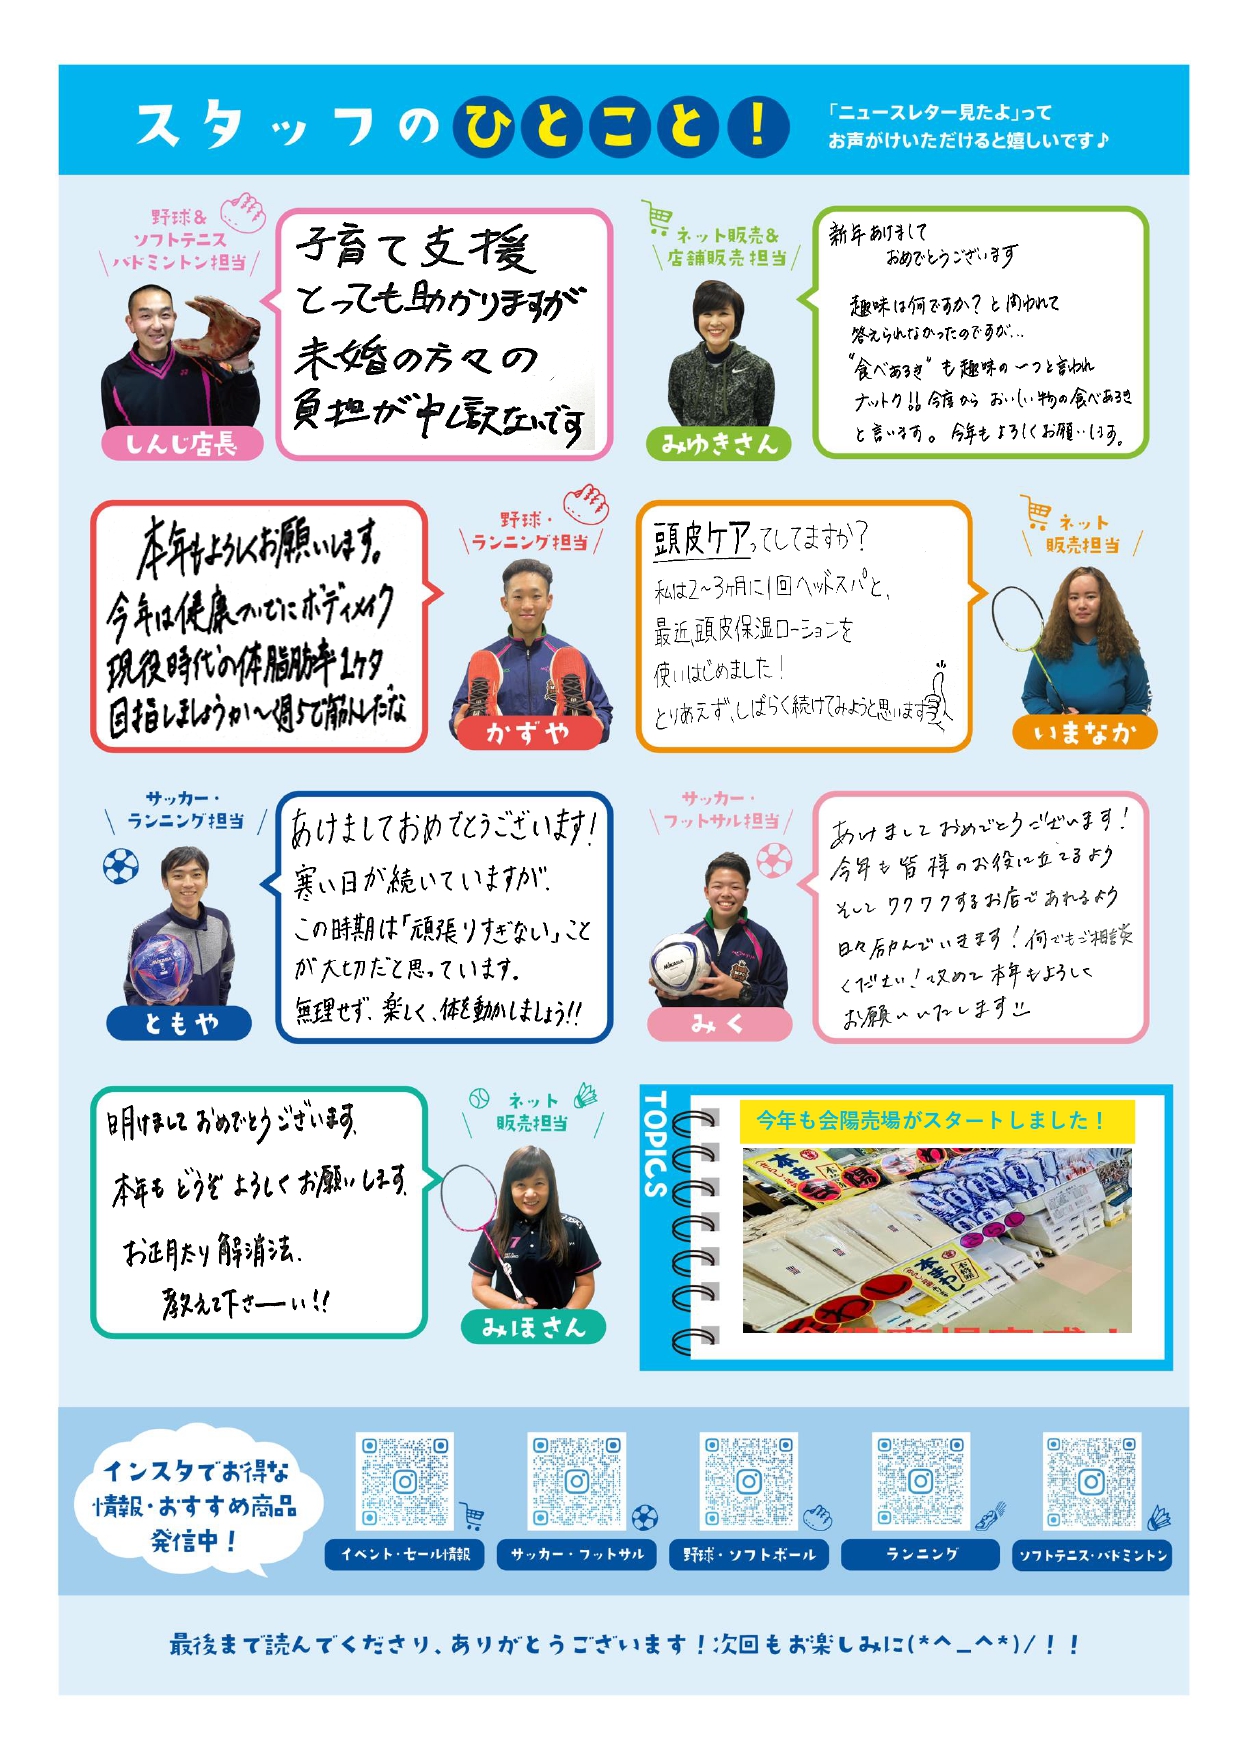 スタッフのひとこと!
「ニュースレター見たよ」って
お声がけいただけると嬉しいです♪
野球&
ソフトテニス
バドミントン担当
しんじ店長
子育て支援
とっても助かりますが
未婚の方々の
負担が申し訳ないです
ネット販売&
店舗販売担当
みゆきさん
新年あけまして
おめでとうございます
趣味は何ですか?と問われて
答えられなかったのですが...
"食べあるき"も趣味の一つと言われ
ナットク!!今度から おいしい物の食べあるき
と言います。今年もよろしくお願いします。
本年もよろしくお願いします。
今年は健康ついでにボディメイク
現役時代の体脂肪率1ケタ
目指しましょうか〜週5で筋トレだな
野球・
ランニング担当
かずや
頭皮ケアってしてますか?
私は2~3ヶ月に1回ヘッドスパと、
最近、頭皮保湿ローションを
使いはじめました!
とりあえず、しばらく続けてみようと思います
ネット
販売担当
いまなか
サッカー・
ランニング担当
ともや
あけましておめでとうございます!
寒い日が続いていますが、
この時期は「頑張りすぎない」こと
が大切だと思っています。
無理せず、楽しく、体を動かしましょう!!
サッカー・
フットサル担当
みく
あけましておめでとうございます!
今年も皆様のお役に立てるよう
そしてワクワクするお店であれるよう
日々励んでいきます!何でもご相談
ください!改めて本年もよろしく
お願いいたします
明けましておめでとうございます。
本年もどうぞよろしくお願いします。
お正月太り解消法、
教えて下さーい!!
ネット
販売担当
みほさん
TOPICS
今年も会陽売場がスタートしました!
本まわし
インスタでお得な
情報・おすすめ商品
発信中!
イベント・セール情報
サッカー・フットサル
野球・ソフトボール
ランニング
ソフトテニス・バドミントン
最後まで読んでくださり、ありがとうございます!次回もお楽しみに(*^_^*)/!!